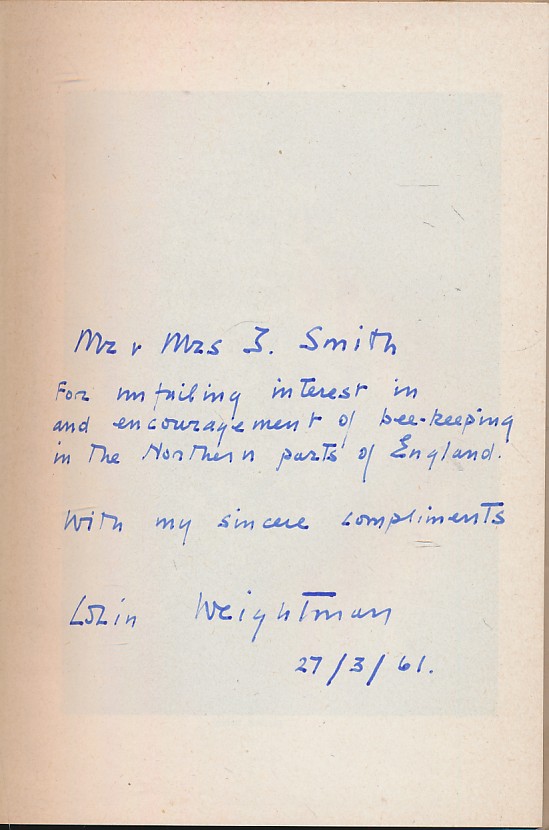 Mr & Mrs J. Smith
For unfailing interest in
and encouragement of bee-keeping
in the Northern parts of England.
With my sincere compliments
Colin Weightman
27/3/61.